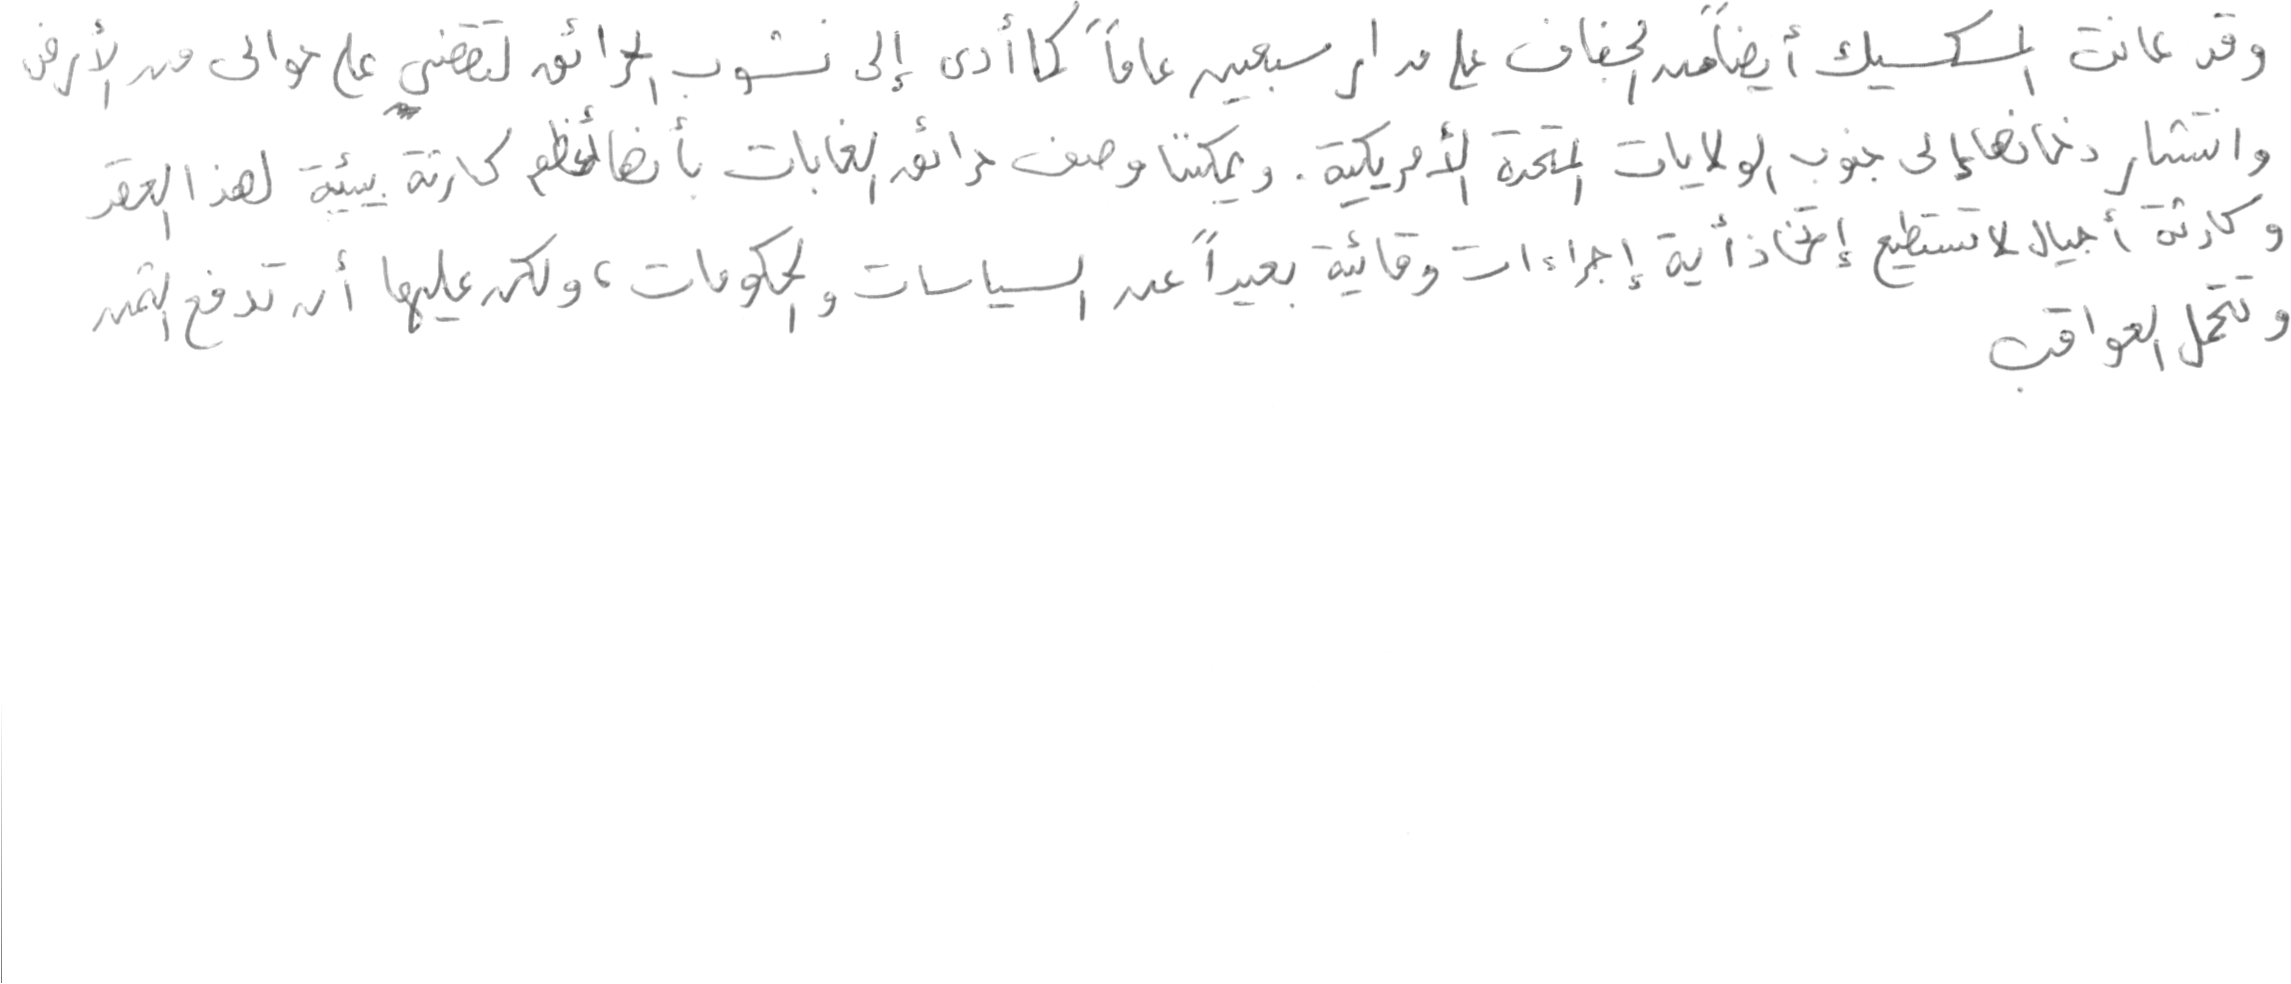 وقد عانت المسكسيك أيضاً من الجفاف على مدار سبعين عاماً كما أدى إلى نشوب الحرائق لتقضي على حوالى من الأرض
وانتشار دخانها إلى جنوب الولايات المتحدة الأمريكية. ويمكننا وصف حرائق الغابات بأنها أعظم كارثة بيئية لهذا العقد
وكارثة أجيال لا تستطيع إتخاذ أية إجراءات وقائية بعيداً عن السياسات والحكومات، ولكن عليها أن تدفع الثمن
وتتحمل العواقب